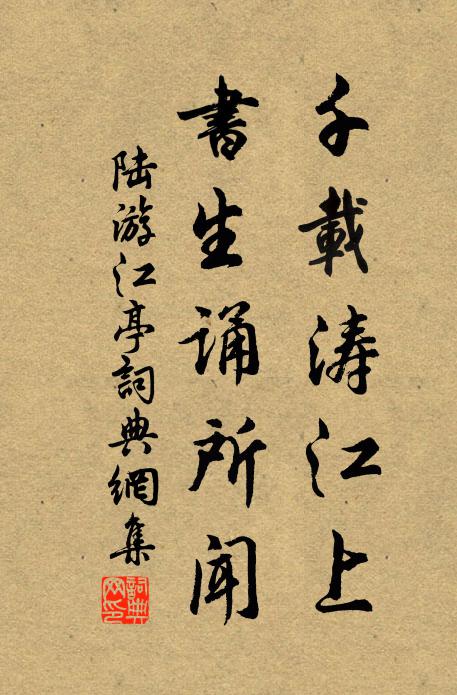 千載濤江上
書生誦所聞
陸游江亭詞典網集
詞典網印